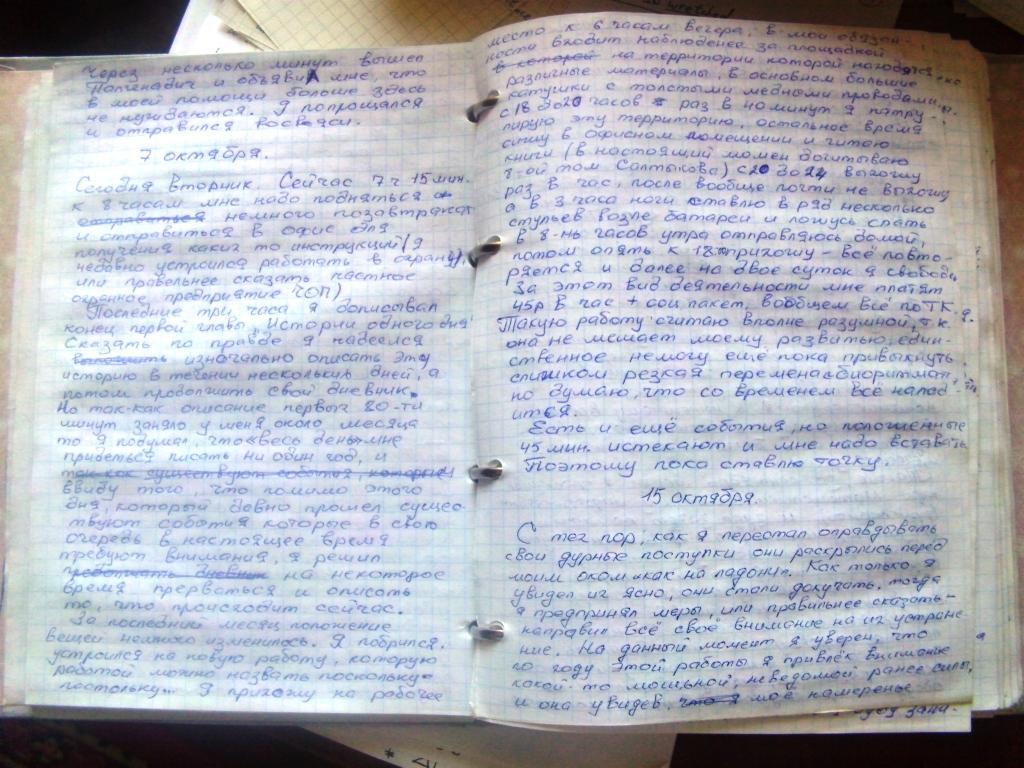 Через несколько минут вышел
Папгенадич и объявил мне, что
в моей помощи больше здесь
не нуждаются. Я попрощался
и отправился восвояси.
7 октября.
Сегодня вторник. Сейчас 7ч 15 мин.
к 8 часам мне надо подняться
отправиться немного позавтракат
и отправиться в офис для
получения каких то инструкций (я
недавно устроился работать в охрану,
или правельнее сказать частное
охранное предприятие ЧОП)
Последние три часа я дописывал
конец первой главы „Истории одного дня"
Сказать по правде я надеелся
изначально описать эту
историю в течении нескольких дней, а
потом продолжить свой дневник.
Но так-как описание первых 20-ти
минут заняло у меня около месяца
то я подумал, что «весь день» мне
придеться писать ни один год, и
так как существуют события, которые
ввиду того, что помимо этого
дня, который давно прошел сущес-
твуют события которые в свою
очередь в настоящее время
требуют внимания, я решил
продолжать дневник на некоторое
время прерваться и описать
то, что происходит сейчас.
За последний месяц положение
вещей немного изменилось. Я побрился.
устроился на новую работу, которую
работой можно назвать поскольку-
постольку... Я прихожу на рабочее
место к 6 часам вечера, в мои обязан-
ности входит наблюдение за площадкой
в которой на территории которой находятся
различные материалы, в основном большие
катушки с толстыми медными проводами.
с 18 до 20 часов раз в 40 минут я патру-
лирую эту территорию, остальное время
сижу в офисном помещении и читаю
книги (в настоящий момен дочитываю
8-ой том Салтыкова) с 20 до 24 выхожу
раз в час, после вообще почти не выхожу
а в 3 часа ночи ставлю в ряд несколько
стульев возле батареи и ложусь спать
в 8-мь часов утра отправляюсь домой,
потом опять к 18 прихожу - всё повто-
ряется и далее на двое суток я свободе
За этот вид деятельности мне платят
45р в час + соц пакет, вообщем всё по ТК
Такую работу считаю вполне разумной, т.к.
она не мешает моему развитью, един-
ственное немогу ещё пока привыкнуть,
слишком резкая переменабиоритма
но думаю, что со временем всё налад-
ится.
Есть и ещё события, но положенные
45 мин. истекают и мне надо вставать
Поэтому пока ставлю точку.
15 октября.
С тех пор, как я перестал оправдывать
свои дурные поступки они раскрылись перед
моим оком «как на ладони». Как только я
увидел их ясно, они стали докучать, тогда
я предпринял меры, или правильнее сказать-
направил всё своё внимание на их устране-
ние. На данный момент я уверен, что
по ходу этой работы я привлёк внимание
какой-то мощьной, неведомой ранее силы,
и она увидев, что я моё намеренье